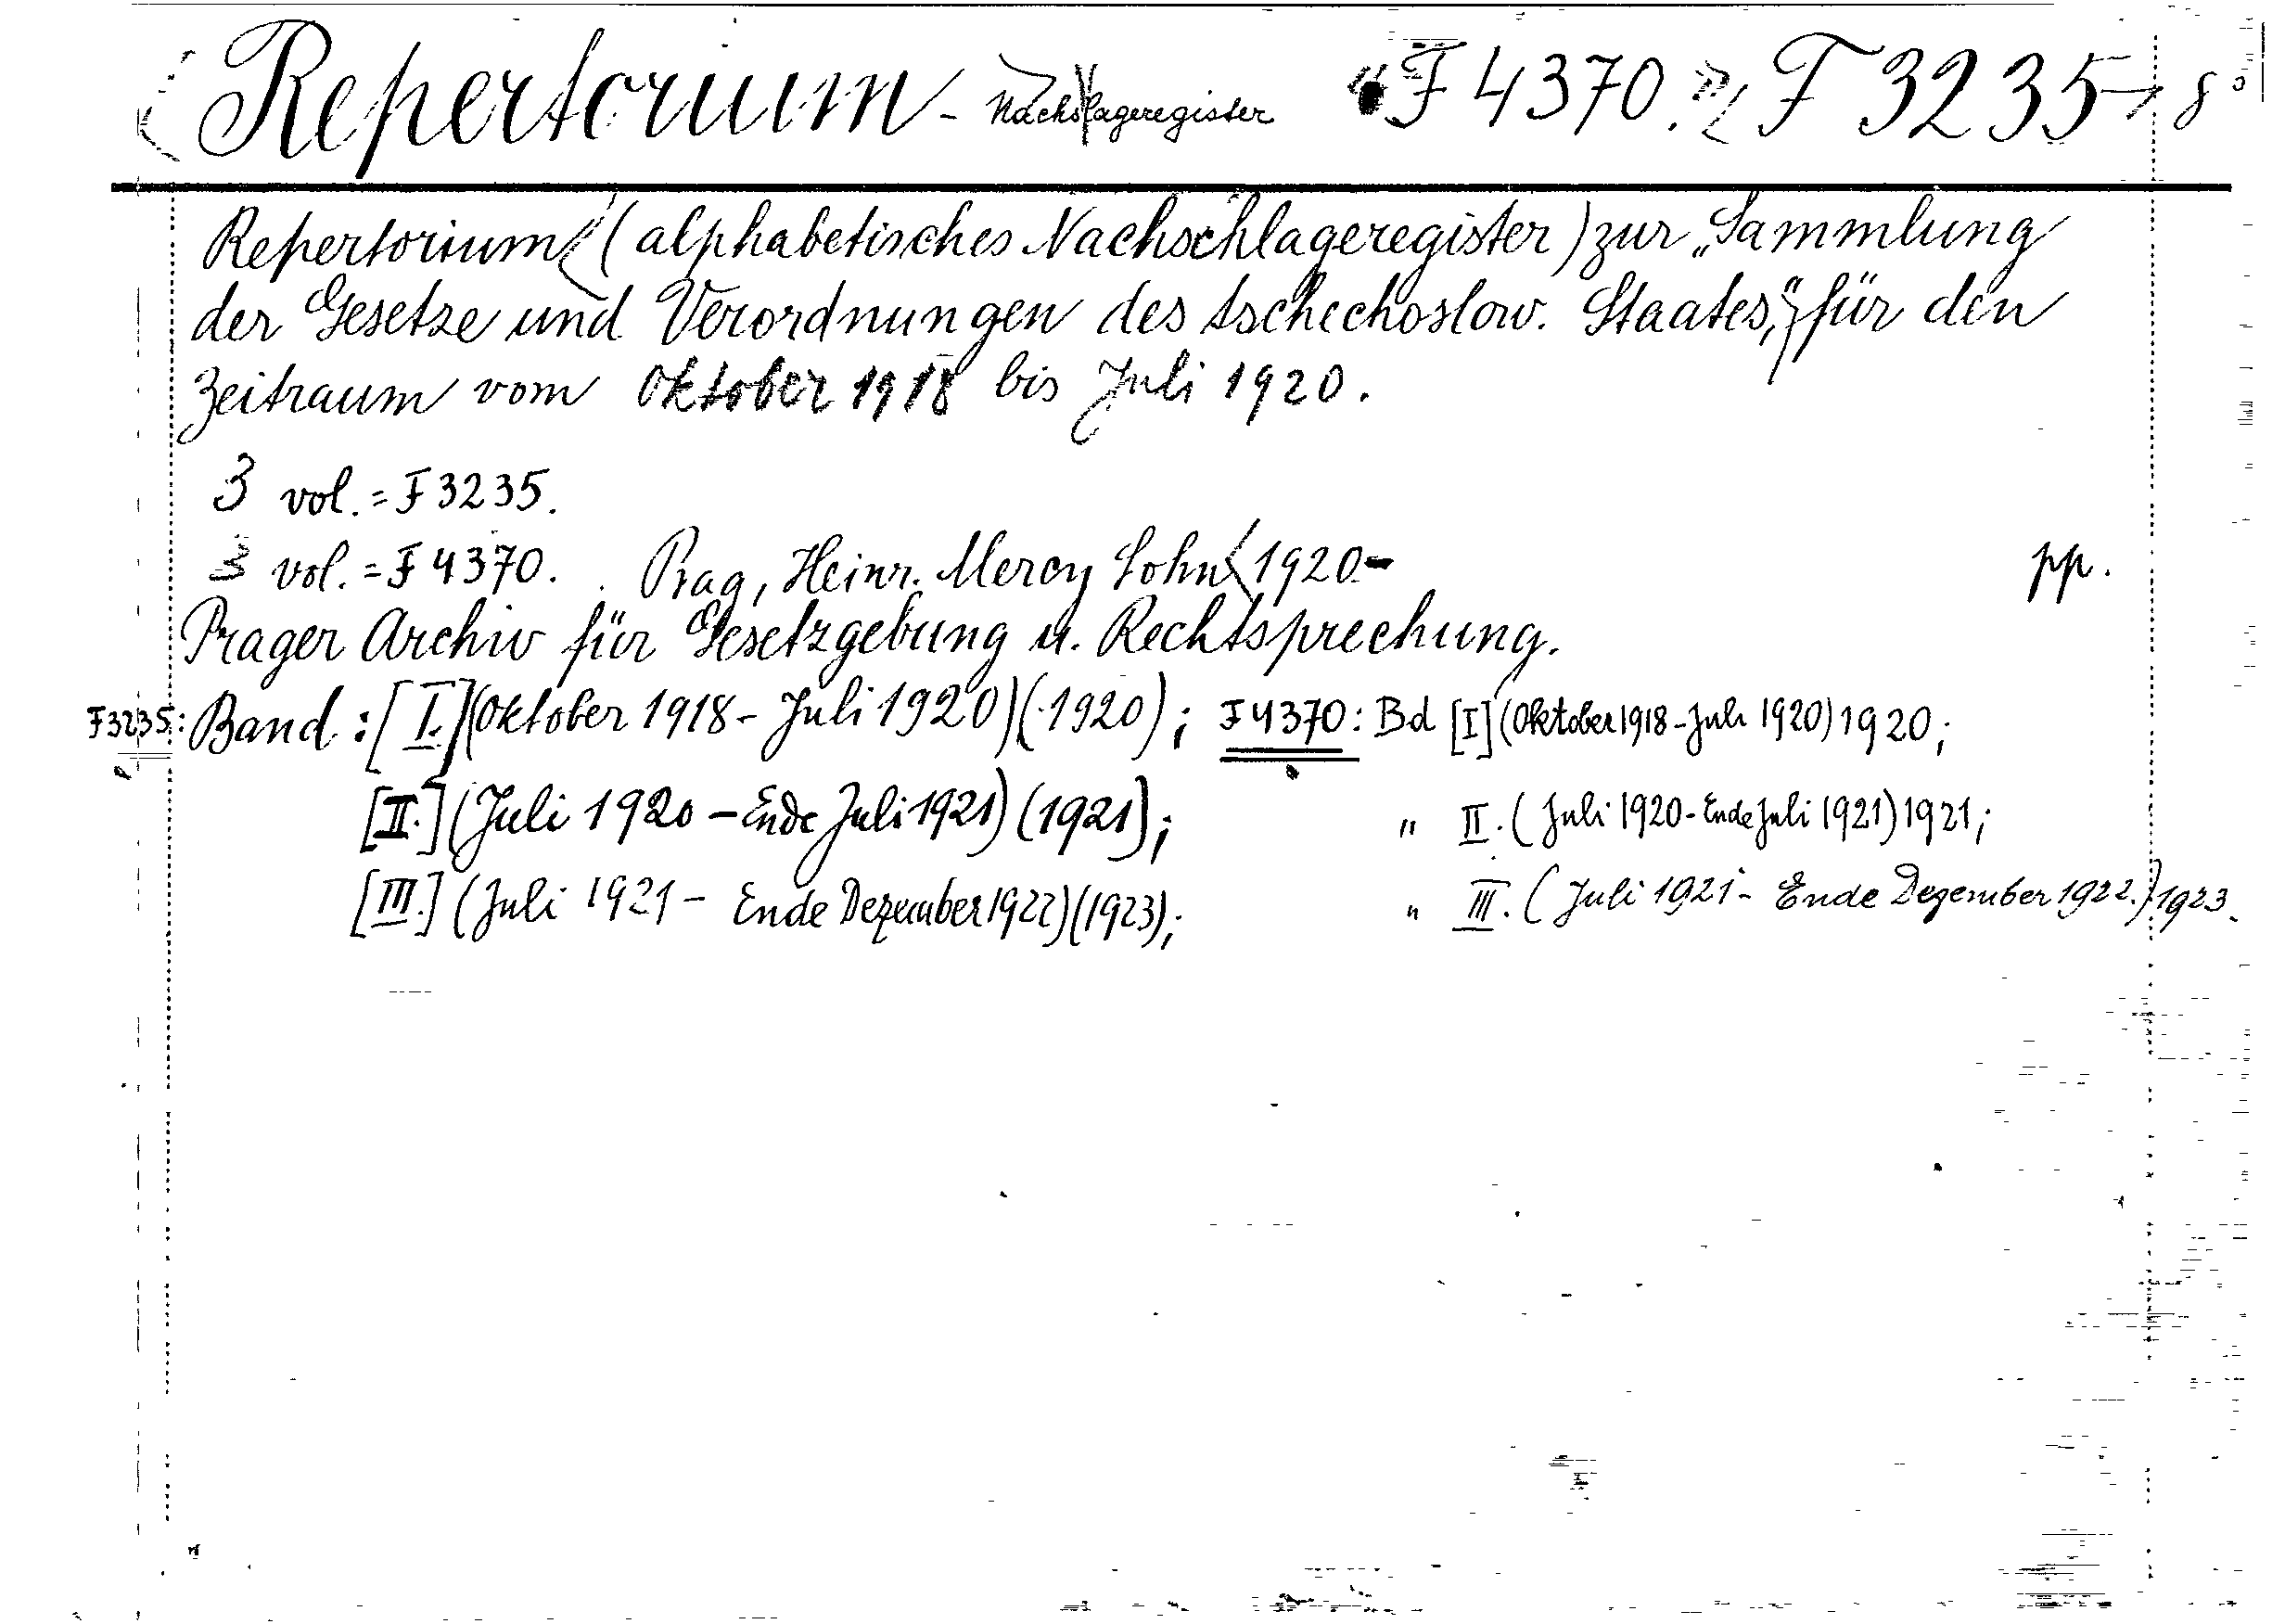 Repertorium - Nachslageregister F 4370. F 3235 8°
Repertorium (alphabetisches Nachschlageregister) zur „Sammlung
der Gesetze und Verordnungen des tschechoslow. Staates," für den
Zeitraum vom Oktober 1918 bis Juli 1920.
3 vol. = F 3235.
3 vol. = F 4370. Prag, Heinr. Mercy Sohn 1920- pp.
Prager Archiv für Gesetzgebung u. Rechtsprechung.
F3235: Band: [I.] (Oktober 1918 - Juli 1920) (1920); F 4370: Bd [I] (Oktober 1918 - Juli 1920) 1920;
[II.] (Juli 1920 - Ende Juli 1921) (1921); " II. (Juli 1920 - Ende Juli 1921) 1921;
[III.] (Juli 1921 - Ende Dezember 1922) (1923); " III. (Juli 1921 - Ende Dezember 1922.) 1923.